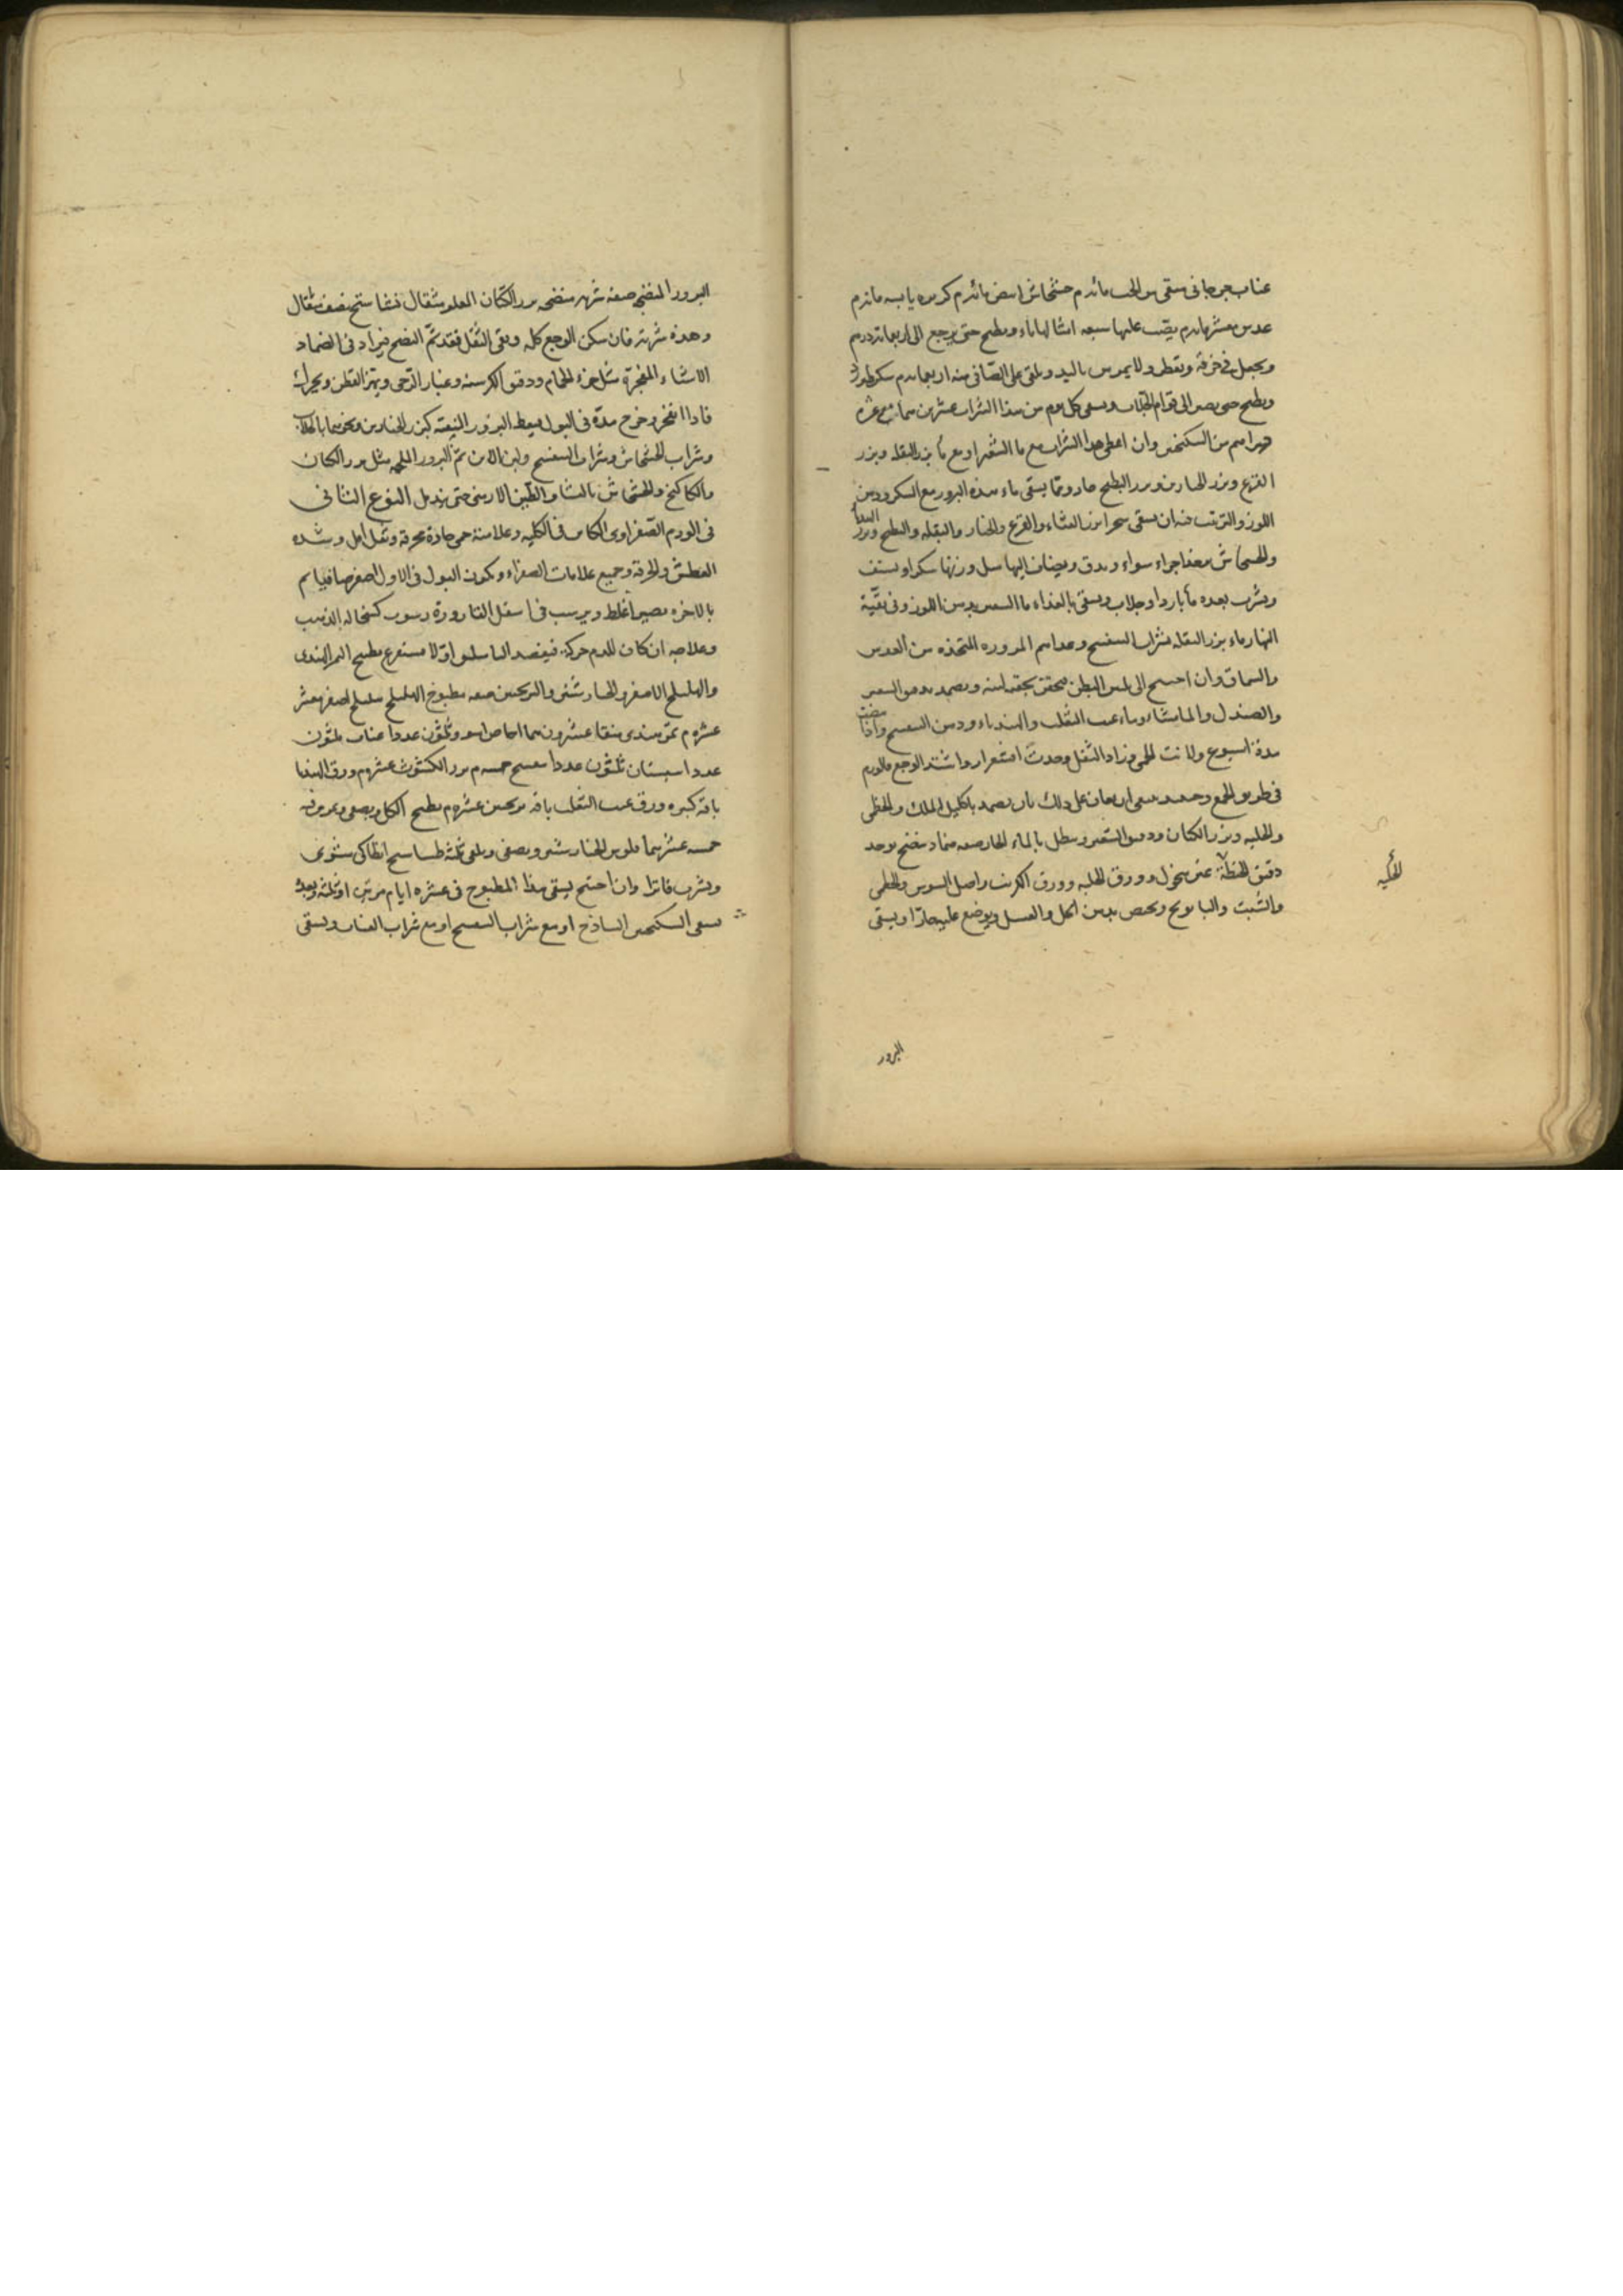 عناب جرجانى منقى من الحب مائة درم خشخاش ابيض مائة درم كزبره يابسه مائة درم
عدس مقشر مائة درم يصب عليها سبعه امثالها ماء ويطبخ حتى يرجع الى اربعمائة درهم
ويجعل فى خرقة ويقطر ولا يمرس باليد ويلقى على الصافى منه اربعمائة درم سكر طبرزد
ويطبخ حتى يصير الى قوام الجلاب ويسقى كل يوم من هذا الشراب عشرين
دراهم من السكنجبين وان اعطى هذا الشراب مع ما الشعير او مع ما بزر البقله وبزر
القرع وبزر الخيارين وبزر البطيخ جاز ومما يسقى ماء هذه البزور مع السكر ودهن
اللوز والترتيب فيه ان يسقى سحرا بزر القثاء والقرع والخيار والبقله والبطيخ وبزر
والخشخاش مقشرا اجزاء سواء ويدق ويضاف اليها مثل وزنها سكر او يستف
ويشرب بعده ماء باردا وجلاب ويسقى بالغداء ما الشعير بدهن اللوز وفى بقية
النهار ماء بزر البقله بشراب البنفسج وغذاهم المزوره المتخذه من العدس
والسماق وان احتيج الى لين البطن فيحقن بحقنه لينه ويضمد بدقيق الشعير
والصندل والماميثا وماء عنب الثعلب والهندباء ودهن البنفسج واذا مضت
مدة اسبوع ولانت الحمى وزاد الثقل وحدث اقشعرار واشتد الوجع فالورم
فى طريق الجمع وحينئذ ينبغى ان يعان على ذلك بان يضمد باكليل الملك والخطمى
والحلبه وبزر الكتان ودقيق الشعير ويبطل بالماء الحار صفه ضماد منضج يوخذ
دقيق الحنطة غير منخول وورق الحلبه وورق الكرنب واصل السوس والخطمى
والشبت والبابونج ويعجن بدهن الحل والعسل ويوضع عليه حارا ويسقى
البزور
البزور المنضجه صفه شربه منضجه بزر الكتان المقلو مثقال نشاستج نصف مثقال
وهذه شربة فان سكن الوجع كله وبقى الثقل فقد تم النضج فيزاد فى الضماد
الاشياء المفجرة مثل خرء الحمام ودقيق الكرسنه وغبار الرحى ويهز القطن ويحرك
فاذا انفجر وخرج مدة فى البول فيعطى البزور المنقيه كبزر الخيارين ونحوهما بالجلاب
وشراب الخشخاش وشراب البنفسج ولبن الاتن ثم البزور الملحمه مثل بزر الكتان
والكاكنج والخشخاش بالنشا والطين الارمنى حتى يندمل النوع الثانى
فى الورم الصفراوى الكاين فى الكليه وعلامته حمى حادة محرقة وثقل اقل وشده
العطش والحرقة وجميع علامات الصفراء ويكون البول فى الاول اصفر صافيا ثم
بالاخره يصير اغلظ ويرسب فى اسفل القارورة رسوب كنخاله الذهب
وعلاجه ان كان للدم حركة فيفصد الباسليق اولا ثم يستفرغ بطبيخ التمر الهندى
والهليلج الاصفر والخيارشنبر والترنجبين صفه مطبوخ الهليلج هليلج اصفر مقشر
عشره م تمر هندى منقا عشرون درهما اجاص اسود ثلثون عددا عناب ثلثون
عددا سبستان ثلثون عددا بنفسج خمسه م بزر الكشوث عشره م ورق الهندبا
باقه كبيره ورق عنب الثعلب باقه ترنجبين عشره م يطبخ الكل ويصفى ويمرس فيه
خمسه عشر درهما فلوس الخيارشنبر ويصفى ويلقى ثلثه طساسيج انطاكى مشوى
ويشرب فاترا وان احتيج يسقى هذا المطبوخ فى عشره ايام مرتين او ثلثه وبعده
يسقى السكنجبين الساذج او مع شراب البنفسج او مع شراب العناب ويسقى